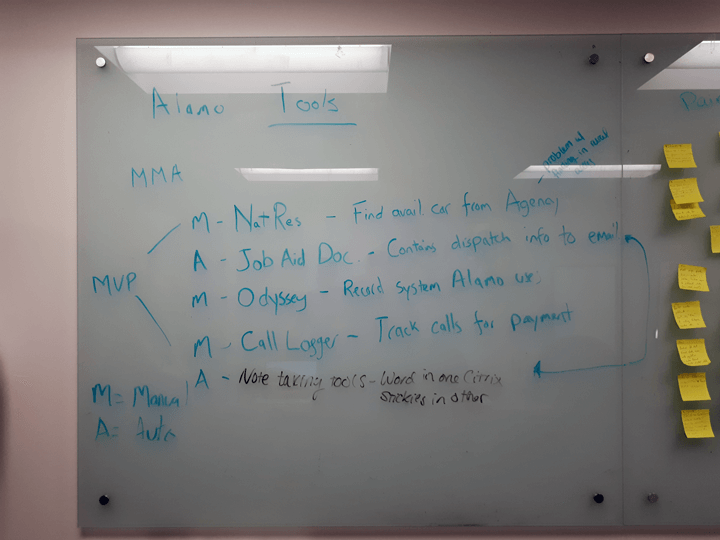 Alamo Tools
MMA
- problem w/
in weak
M - NatRes - Find avail. car from Agency
A - Job Aid Doc. - Contains dispatch info to email
MVP
M - Odyssey - Record system Alamo use
M - Call Logger - Track calls for payment
A - Note taking tools - Word in one Citrix
stickies in other
M = Manual
A = Auto